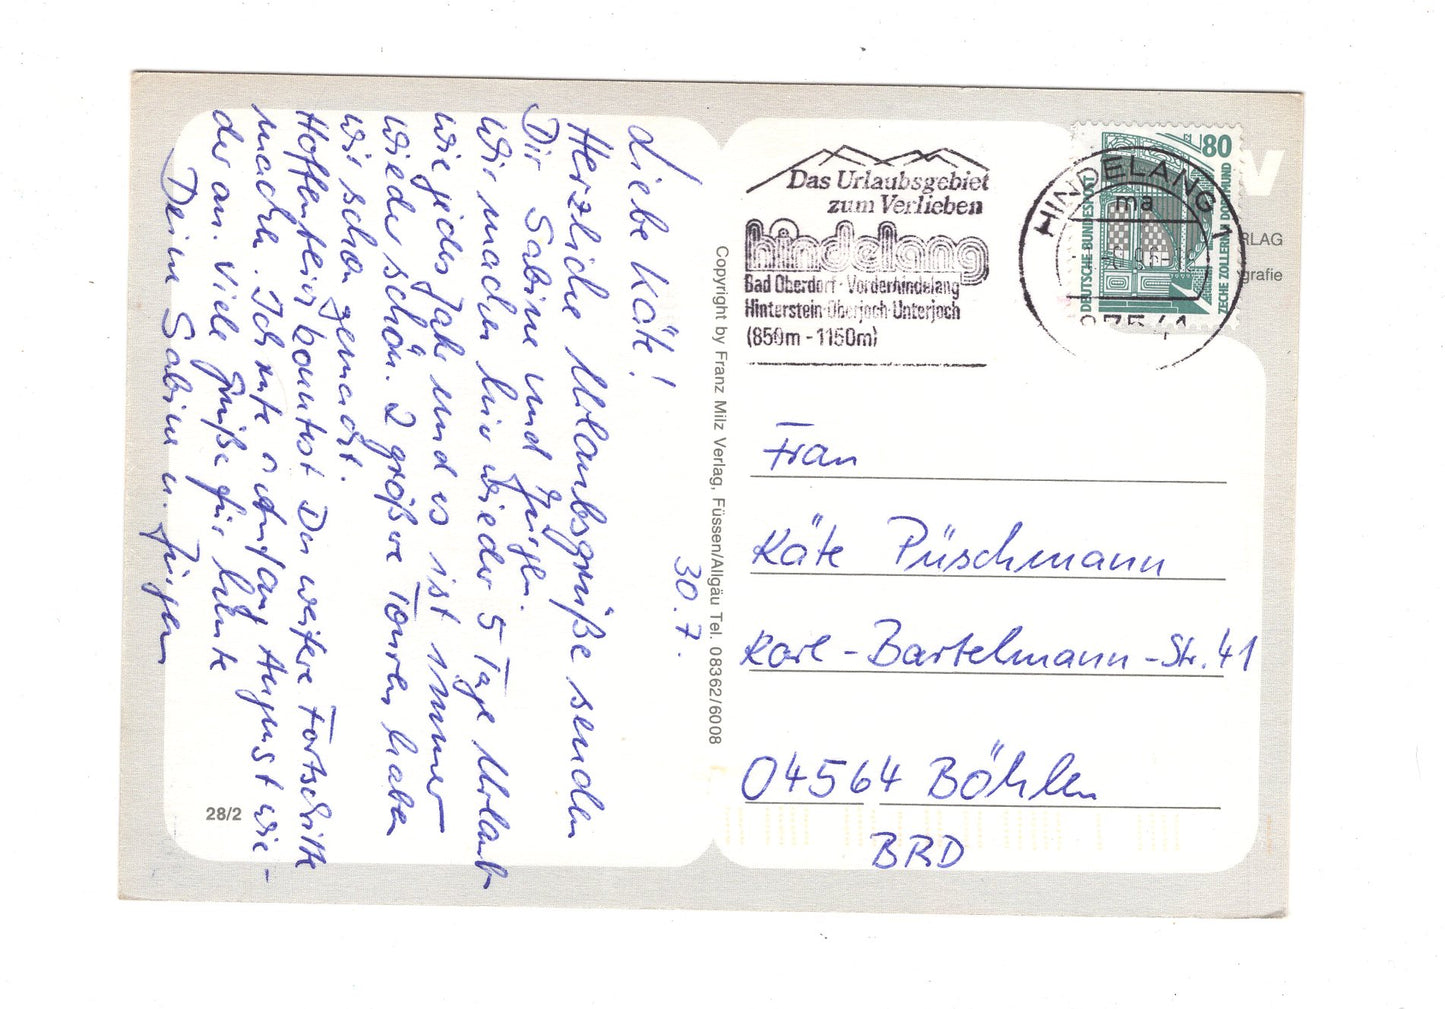 Liebe Käte!
Herzliche Urlaubsgrüße senden
Dir Sabine und Jürgen.
Wir machen hier wieder 5 Tage Urlaub
wie jedes Jahr und es ist immer
wieder schön. 2 größere Touren haben
wir schon gemacht.
Hoffentlich konntest Du weitere Fortschritte
machen. Ich rufe Anfang August wie-
der an. Viele Grüße für heute
Deine Sabine u. Jürgen
30.7.
28/2
Copyright by Franz Milz Verlag, Füssen/Allgäu Tel. 08362/6008
Das Urlaubsgebiet
zum Verlieben
hindelang
Bad Oberdorf · Vorderhindelang
Hinterstein·Oberjoch·Unterjoch
(850m - 1150m)
HINDELANG 1
ma
87541
80
DEUTSCHE BUNDESPOST
ZECHE ZOLLERN II DORTMUND
RLAG
grafie
Frau
Käte Püschmann
Karl-Bartelmann-Str. 41
04564 Böhlen
BRD